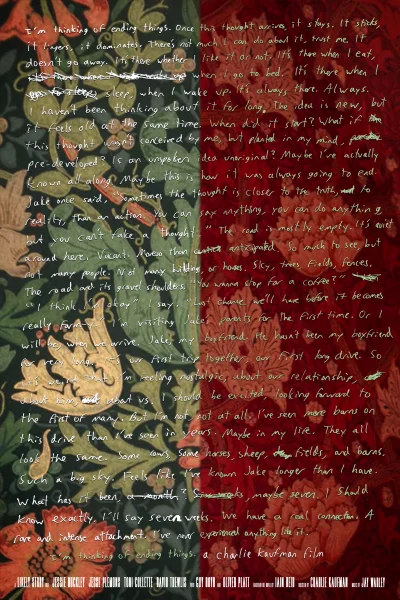 I'm thinking of ending things. Once this thought arrives, it stays. It sticks,
it lingers, it dominates. There's not much I can do about it, trust me. It
doesn't go away. It's there whether I like it or not. It's there when I eat,
when I go to bed. It's there when I
sleep, when I wake up. It's always there. Always.
I haven't been thinking about it for long. The idea is new, but
it feels old at the same time. When did it start? What if
this thought wasn't conceived by me, but planted in my mind,
pre-developed? Is an unspoken idea unoriginal? Maybe I've actually
known all along. Maybe this is how it was always going to end.
Jake once said, "Sometimes the thought is closer to the truth, to
reality, than an action. You can say anything, you can do anything,
but you can't fake a thought." The road is mostly empty. It's quiet
around here. Vacant. More so than anticipated. So much to see but
not many people. Not many buildings or houses. Sky, trees, fields, fences.
The road and its gravel shoulders. "You wanna stop for a coffee?"
"I think I'm okay," I say. "Last chance we'll have before it becomes
really farm-y." I'm visiting Jake's parents for the first time. Or I
will be, when we arrive. Jake, my boyfriend. He hasn't been my boyfriend
for very long. It's our first trip together, our first long drive. So
it's weird that I'm feeling nostalgic, about our relationship,
about him, about us. I should be excited, looking forward to
the first of many. But I'm not, not at all. I've seen more barns on
this drive than I've seen in years. Maybe in my life. They all
look the same. Some cows. Some horses, sheep, fields, and barns.
Such a big sky. Feels like I've known Jake longer than I have.
What has it been, a month? maybe seven. I should
know exactly. I'll say seven weeks. We have a real connection. A
rare and intense attachment. I've never experienced anything like it.
I'm thinking of ending things. a charlie kaufman film
LIKELY STORY JESSIE BUCKLEY JESSE PLEMONS TONI COLLETTE DAVID THEWLIS GUY BOYD OLIVER PLATT IAIN REID CHARLIE KAUFMAN JAY WADLEY